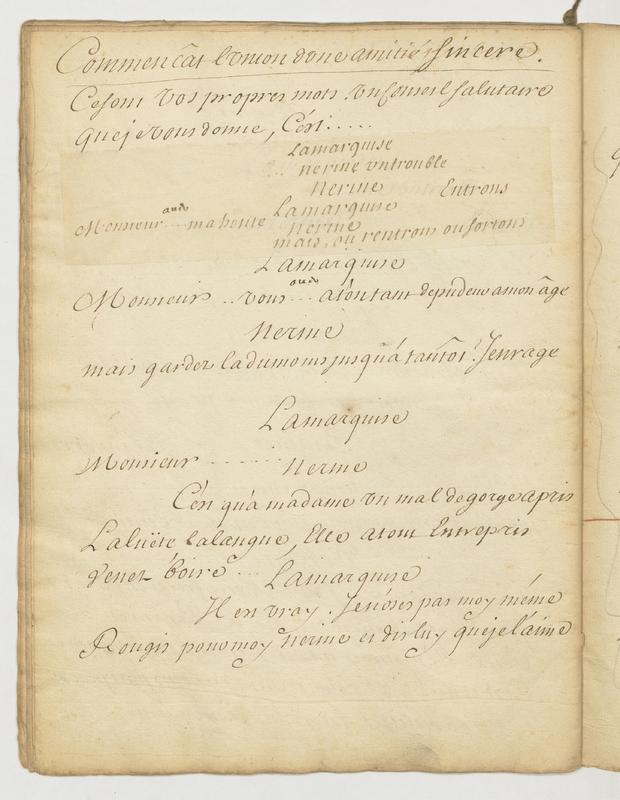 Commencât l'union d'une amitié sincere.
Ce sont vos propres mots. un Conseil salutaire
que je vous donne, C'est.....
Lamarquise
... nerine un trouble
Nerine
Entrons
Lamarquise
Monsieur ... ma honte
aux
Nerine
mais, ou rentrons ou sortons
Lamarquise
Monsieur .. vous ... a t'on tant de pudeur a mon âge
Nerine
mais gardez la du moins jusqu'á tantôt! J'enrage
Lamarquise
Monsieur .......
Nerine
C'est qu'a madame un mal de gorge a pris
La luëte la langue, Elle a tout Entrepris
Venez boire ...
Lamarquise
Il est vray. Je n'ose pas moy même
Rougis pour moy Nerine et dis luy que je l'aime